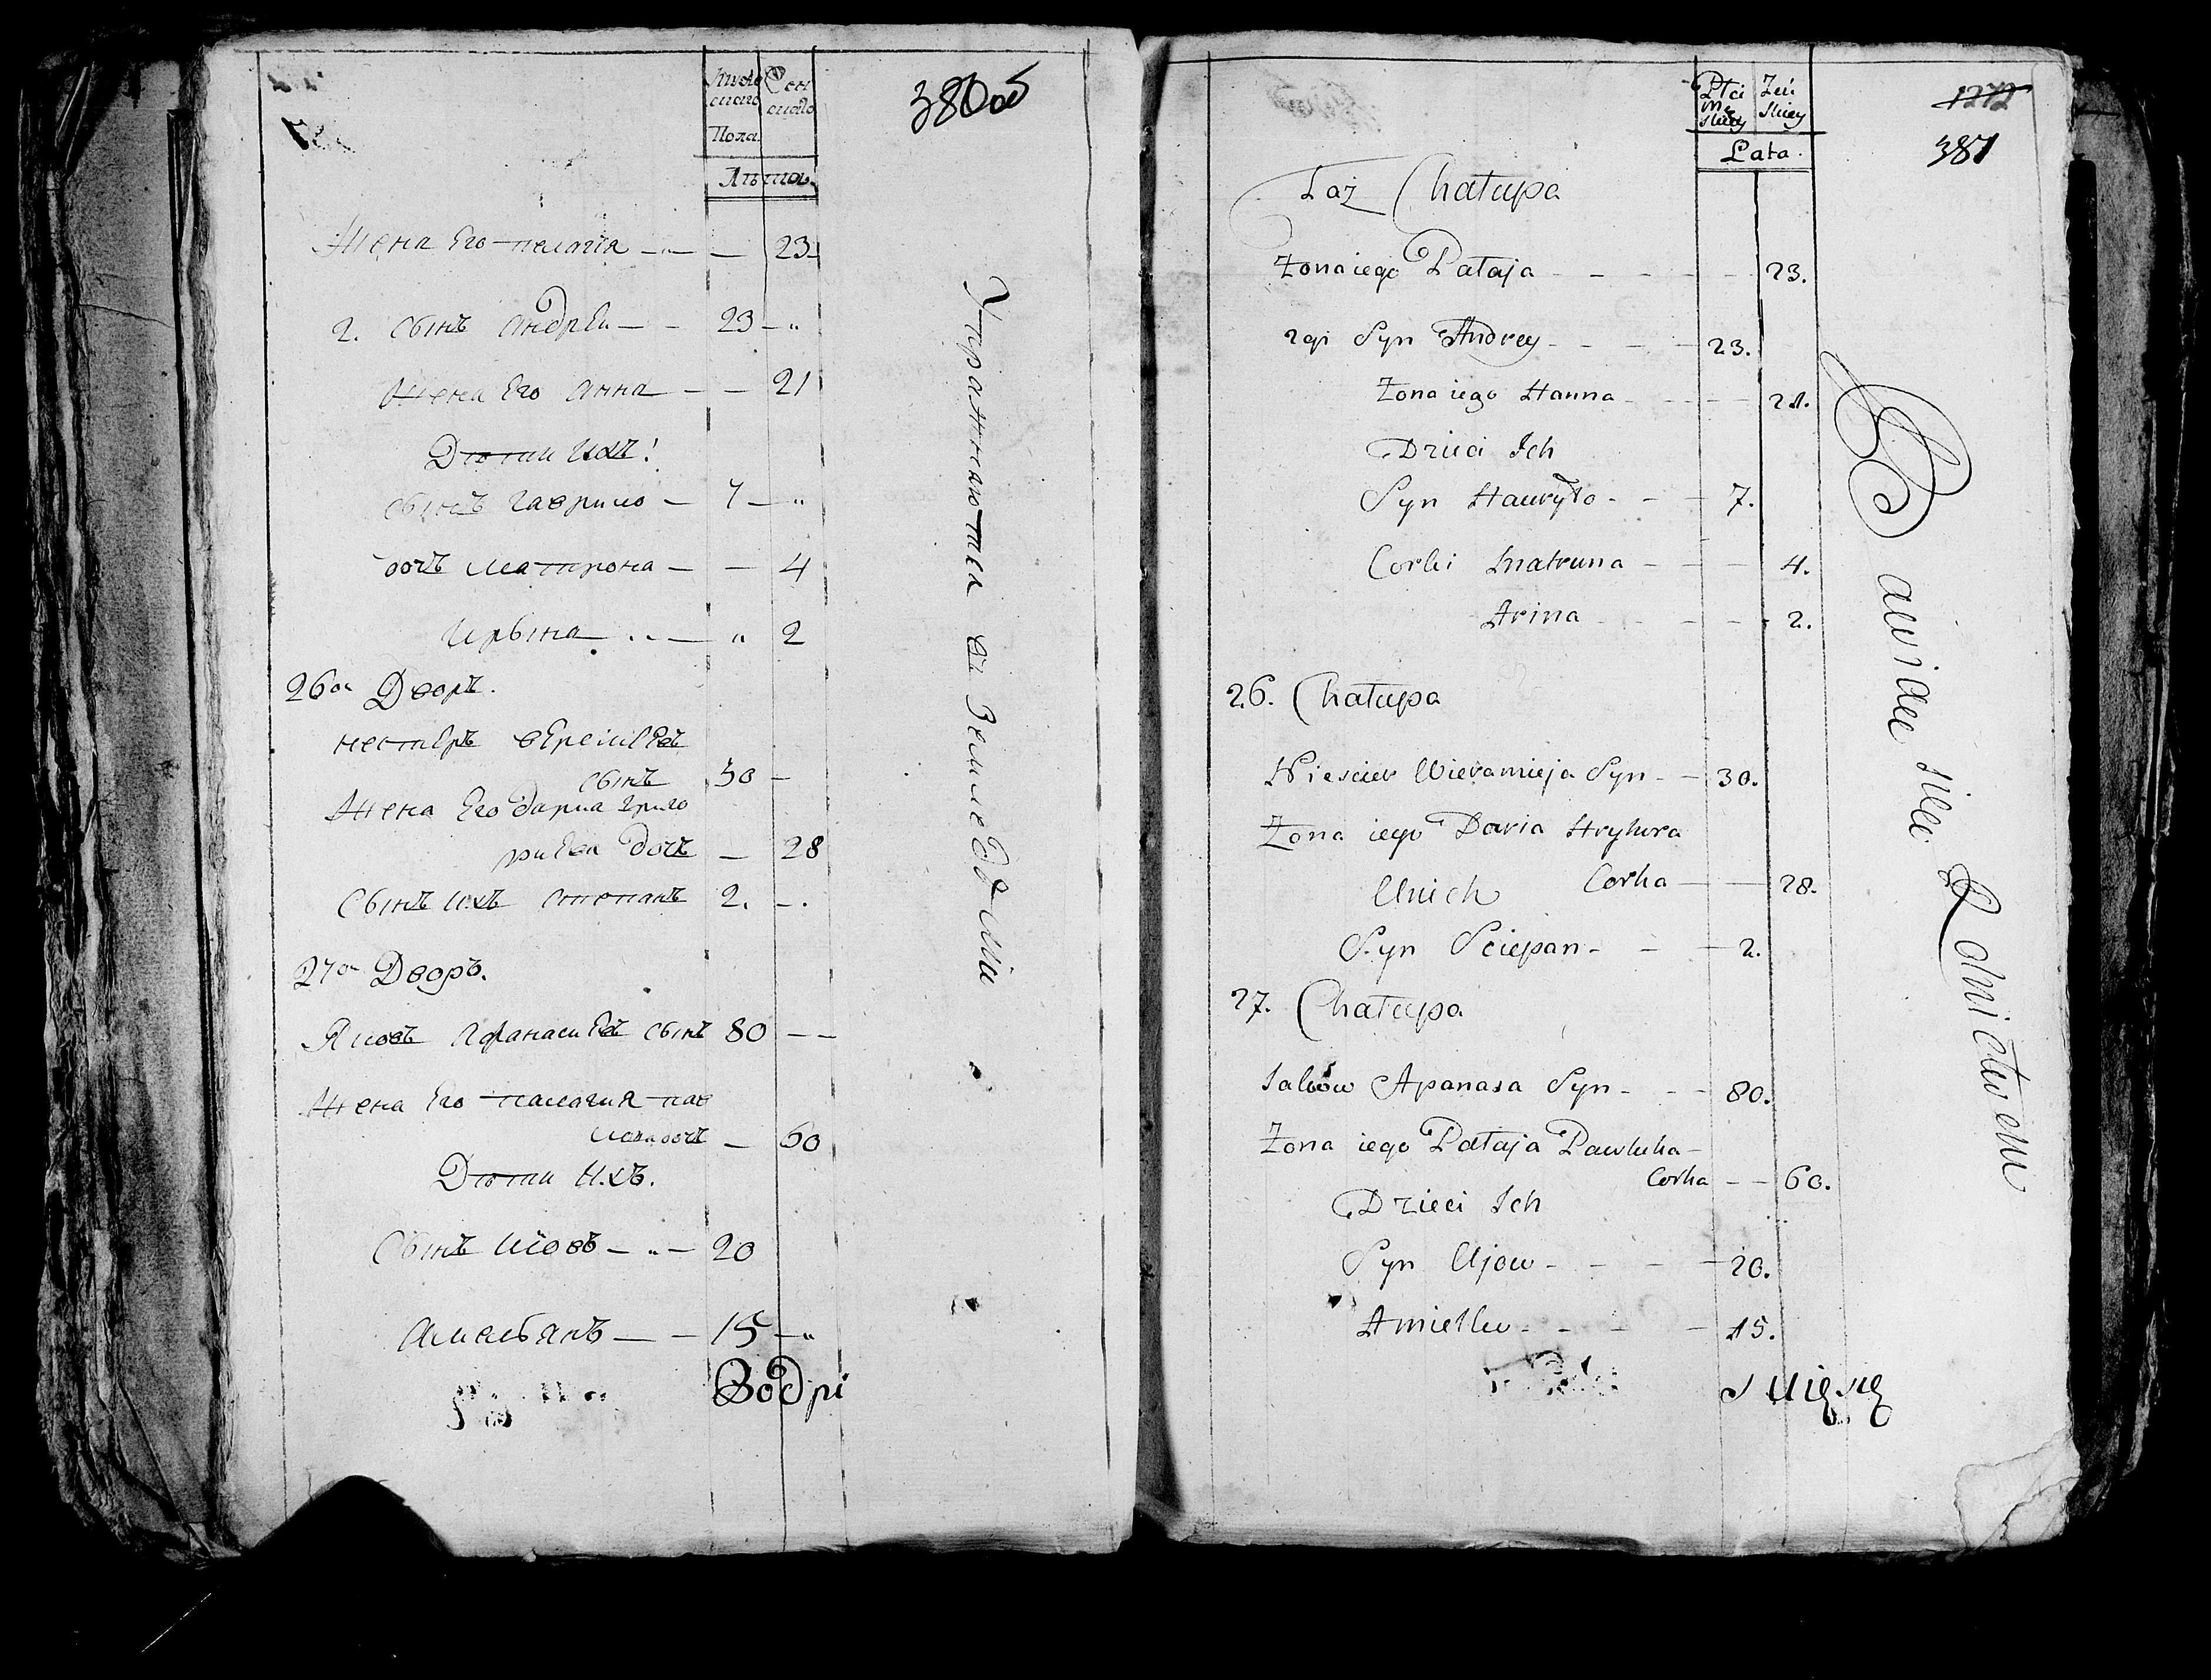 Муже Жен
скаго скаго
Пола
Лѣта.
380 об
Жена Его пелагея — — 23
2. сынъ Андрей — 23 —
Жена Его Анна — — 21
Дѣти Ихъ:
сынъ гаврило — 7 —
дочь Матрона — — 4
Ирына — " 2
26й Дворъ.
нестеръ еремеевъ
сынъ 30 —
Жена Его дарья григо
рьева дочь — 28
Сынъ ихъ степанъ 2. —.
27й Дворъ.
Яковъ Афанасьевъ сынъ 80 — —
Жена Его палагея пав
лова дочь — 60
Дѣти ихъ.
Сынъ Иовъ — 20
Амельянъ — — 15 —
Упражняются въ Земледѣліи
Płci Żeń
mę skiey
skiey
Lata.
1272
381
Taż Chałupa
Żona iego Pałaja - - - - - 23.
2gi Syn Andrey - - - - 23.
Żona iego Hanna - - - - 21.
Dzieci Ich
Syn Hauryło - - - 7.
Corki Matruna - - - 4.
Arina - - - - 2.
26. Chałupa
Niescier Wieramieja Syn - - 30.
Żona iego Daria Hryhora
Corka - - 28.
Unich
Syn Sciepan - - - 2.
27. Chałupa
Jakow Apanasa Syn - - - 80.
Żona iego Pałaja Pawluka -
Corka - - 60.
Dzieci Ich
Syn Ujow - - - - 20.
Amiellan - - - - 15.
Bawiąc się Rolnictwem